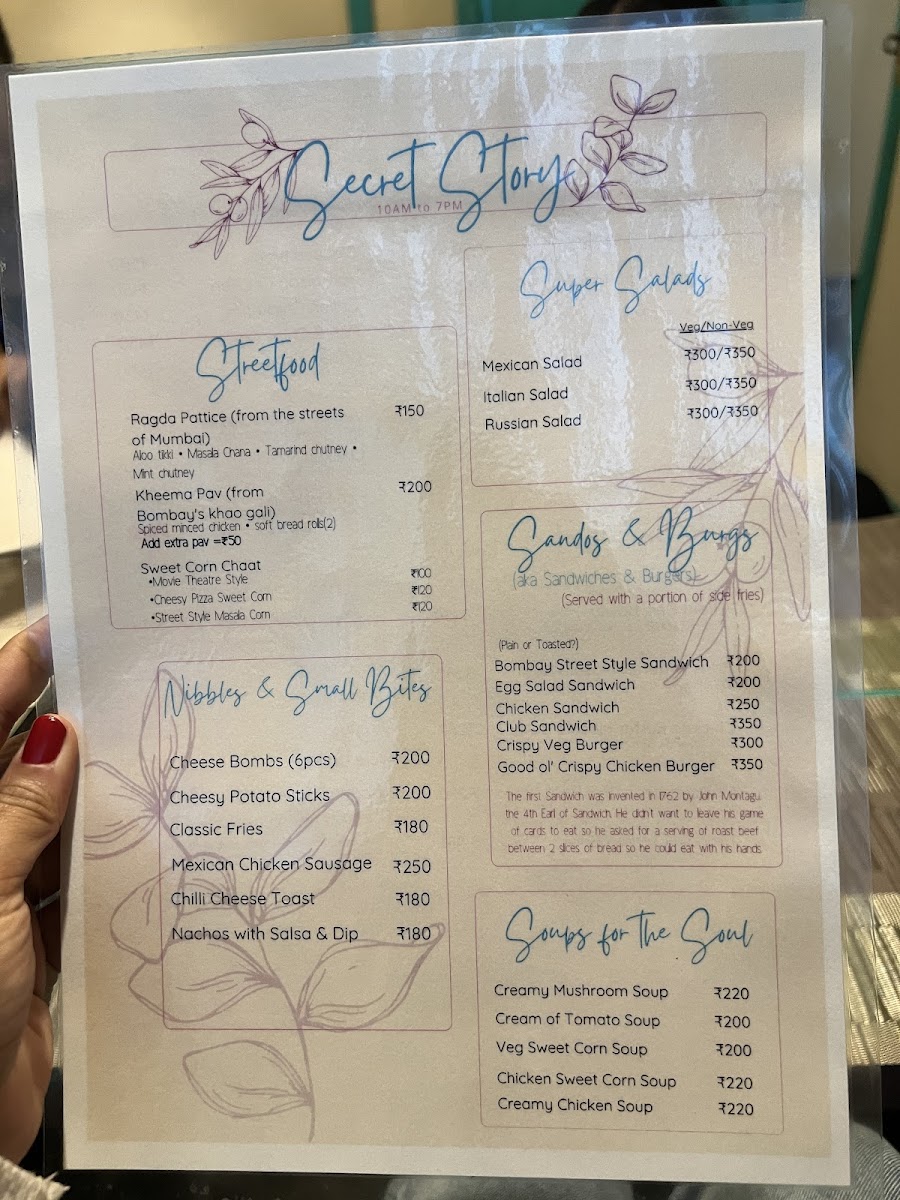 Secret Story
10AM to 7PM
Streetfood
Ragda Pattice (from the streets of Mumbai) ₹150
Aloo tikki • Masala Chana • Tamarind chutney •
Mint chutney
Kheema Pav (from Bombay's khao gali) ₹200
Spiced minced chicken • soft bread rolls(2)
Add extra pav =₹50
Sweet Corn Chaat
•Movie Theatre Style ₹100
•Cheesy Pizza Sweet Corn ₹120
•Street Style Masala Corn ₹120
Nibbles & Small Bites
Cheese Bombs (6pcs) ₹200
Cheesy Potato Sticks ₹200
Classic Fries ₹180
Mexican Chicken Sausage ₹250
Chilli Cheese Toast ₹180
Nachos with Salsa & Dip ₹180
Super Salads
Veg/Non-Veg
Mexican Salad ₹300/₹350
Italian Salad ₹300/₹350
Russian Salad ₹300/₹350
Sandos & Burgs
(aka Sandwiches & Burgers)
(Served with a portion of side fries)
(Plain or Toasted?)
Bombay Street Style Sandwich ₹200
Egg Salad Sandwich ₹200
Chicken Sandwich ₹250
Club Sandwich ₹350
Crispy Veg Burger ₹300
Good ol' Crispy Chicken Burger ₹350
The first Sandwich was invented in 1762 by John Montagu,
the 4th Earl of Sandwich. He didn't want to leave his game
of cards to eat so he asked for a serving of roast beef
between 2 slices of bread so he could eat with his hands
Soups for the Soul
Creamy Mushroom Soup ₹220
Cream of Tomato Soup ₹200
Veg Sweet Corn Soup ₹200
Chicken Sweet Corn Soup ₹220
Creamy Chicken Soup ₹220